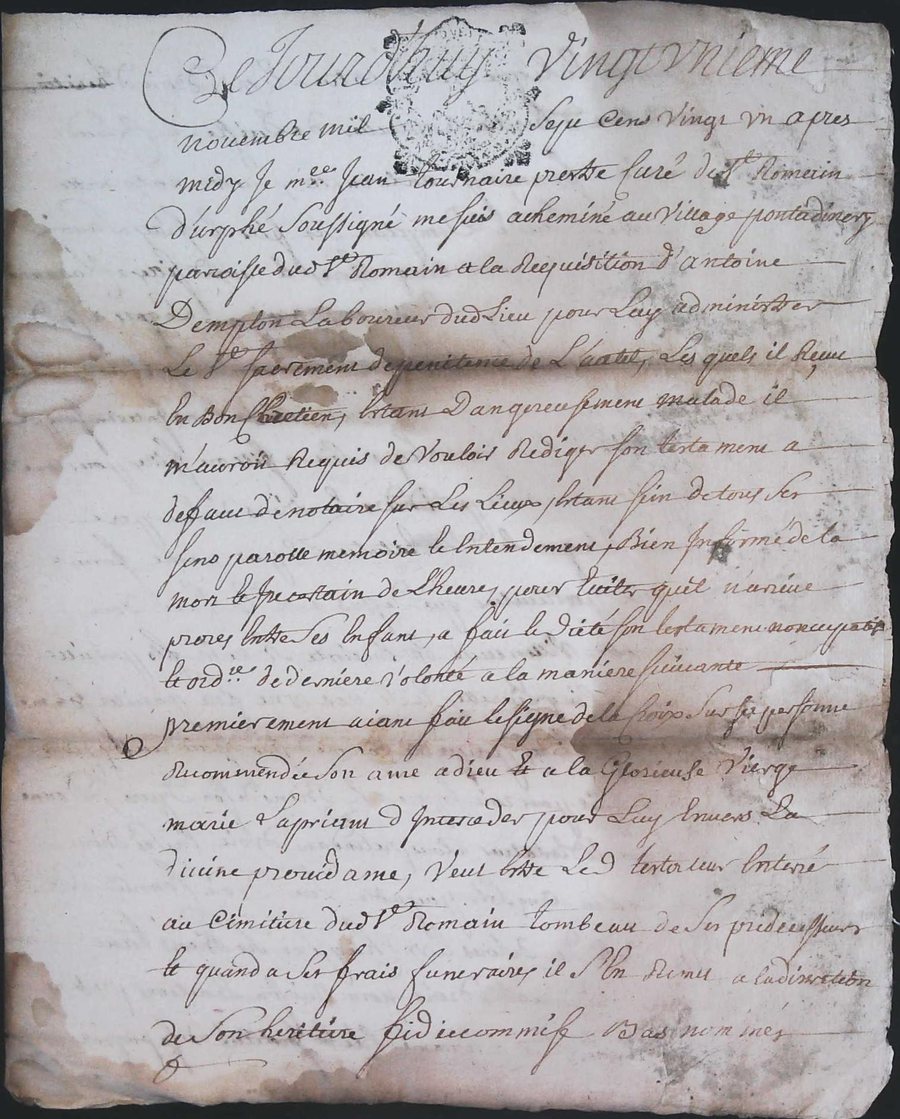 Ce Jourdhuy vingt unieme
novembre mil sept cens vingt un apres
midy Je mre Jean tournaire prestre curé de st Romain
d'urphé soussigné me suis acheminé au village pontadinery
paroisse dud st Romain a la Requisition d'antoine
Dempton Laboureur dud Lieu pour Luy administrer
Le st sacrement de penitence de L'autel, Les quels il Receu
En Bon Chretien, Estant Dangereusement malade il
m'auroit Requis de vouloir Rediger son testament a
deffaut de notaire sur Les Lieux, Estant sein de tous ses
sens parolle memoire Et Entendement, Bien Informé de la
mort Et Incertain de L'heure, pour Eviter quil n'arrive
proces Entre ses Enfant, a fait Et dicté son testament noncupatif
Et ordre de derniere volonté a la maniere suivante
premierement aiant fait Le signe de la Croix sur sa personne
Recommendée son ame a dieu Et a la Glorieuse vierge
marie La priant d'Interceder pour Luy Envers La
divine
ame, veut Estre Led testateur Enterré
au Cimitiere dud st Romain tombeau de ses predecesseurs
Et quand a ses frais funeraires il s'En Remet a la direction
de son heritiere fidiecommise Bas nommée